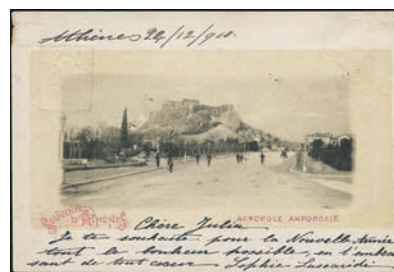 Athènes 24/12/910.
SOUVENIR
D'ATHÈNES
ACROPOLE
Chère Julia
Je te souhaite pour la Nouvelle Année
tout le bonheur possible en t'embras
sant de tout coeur Sophie